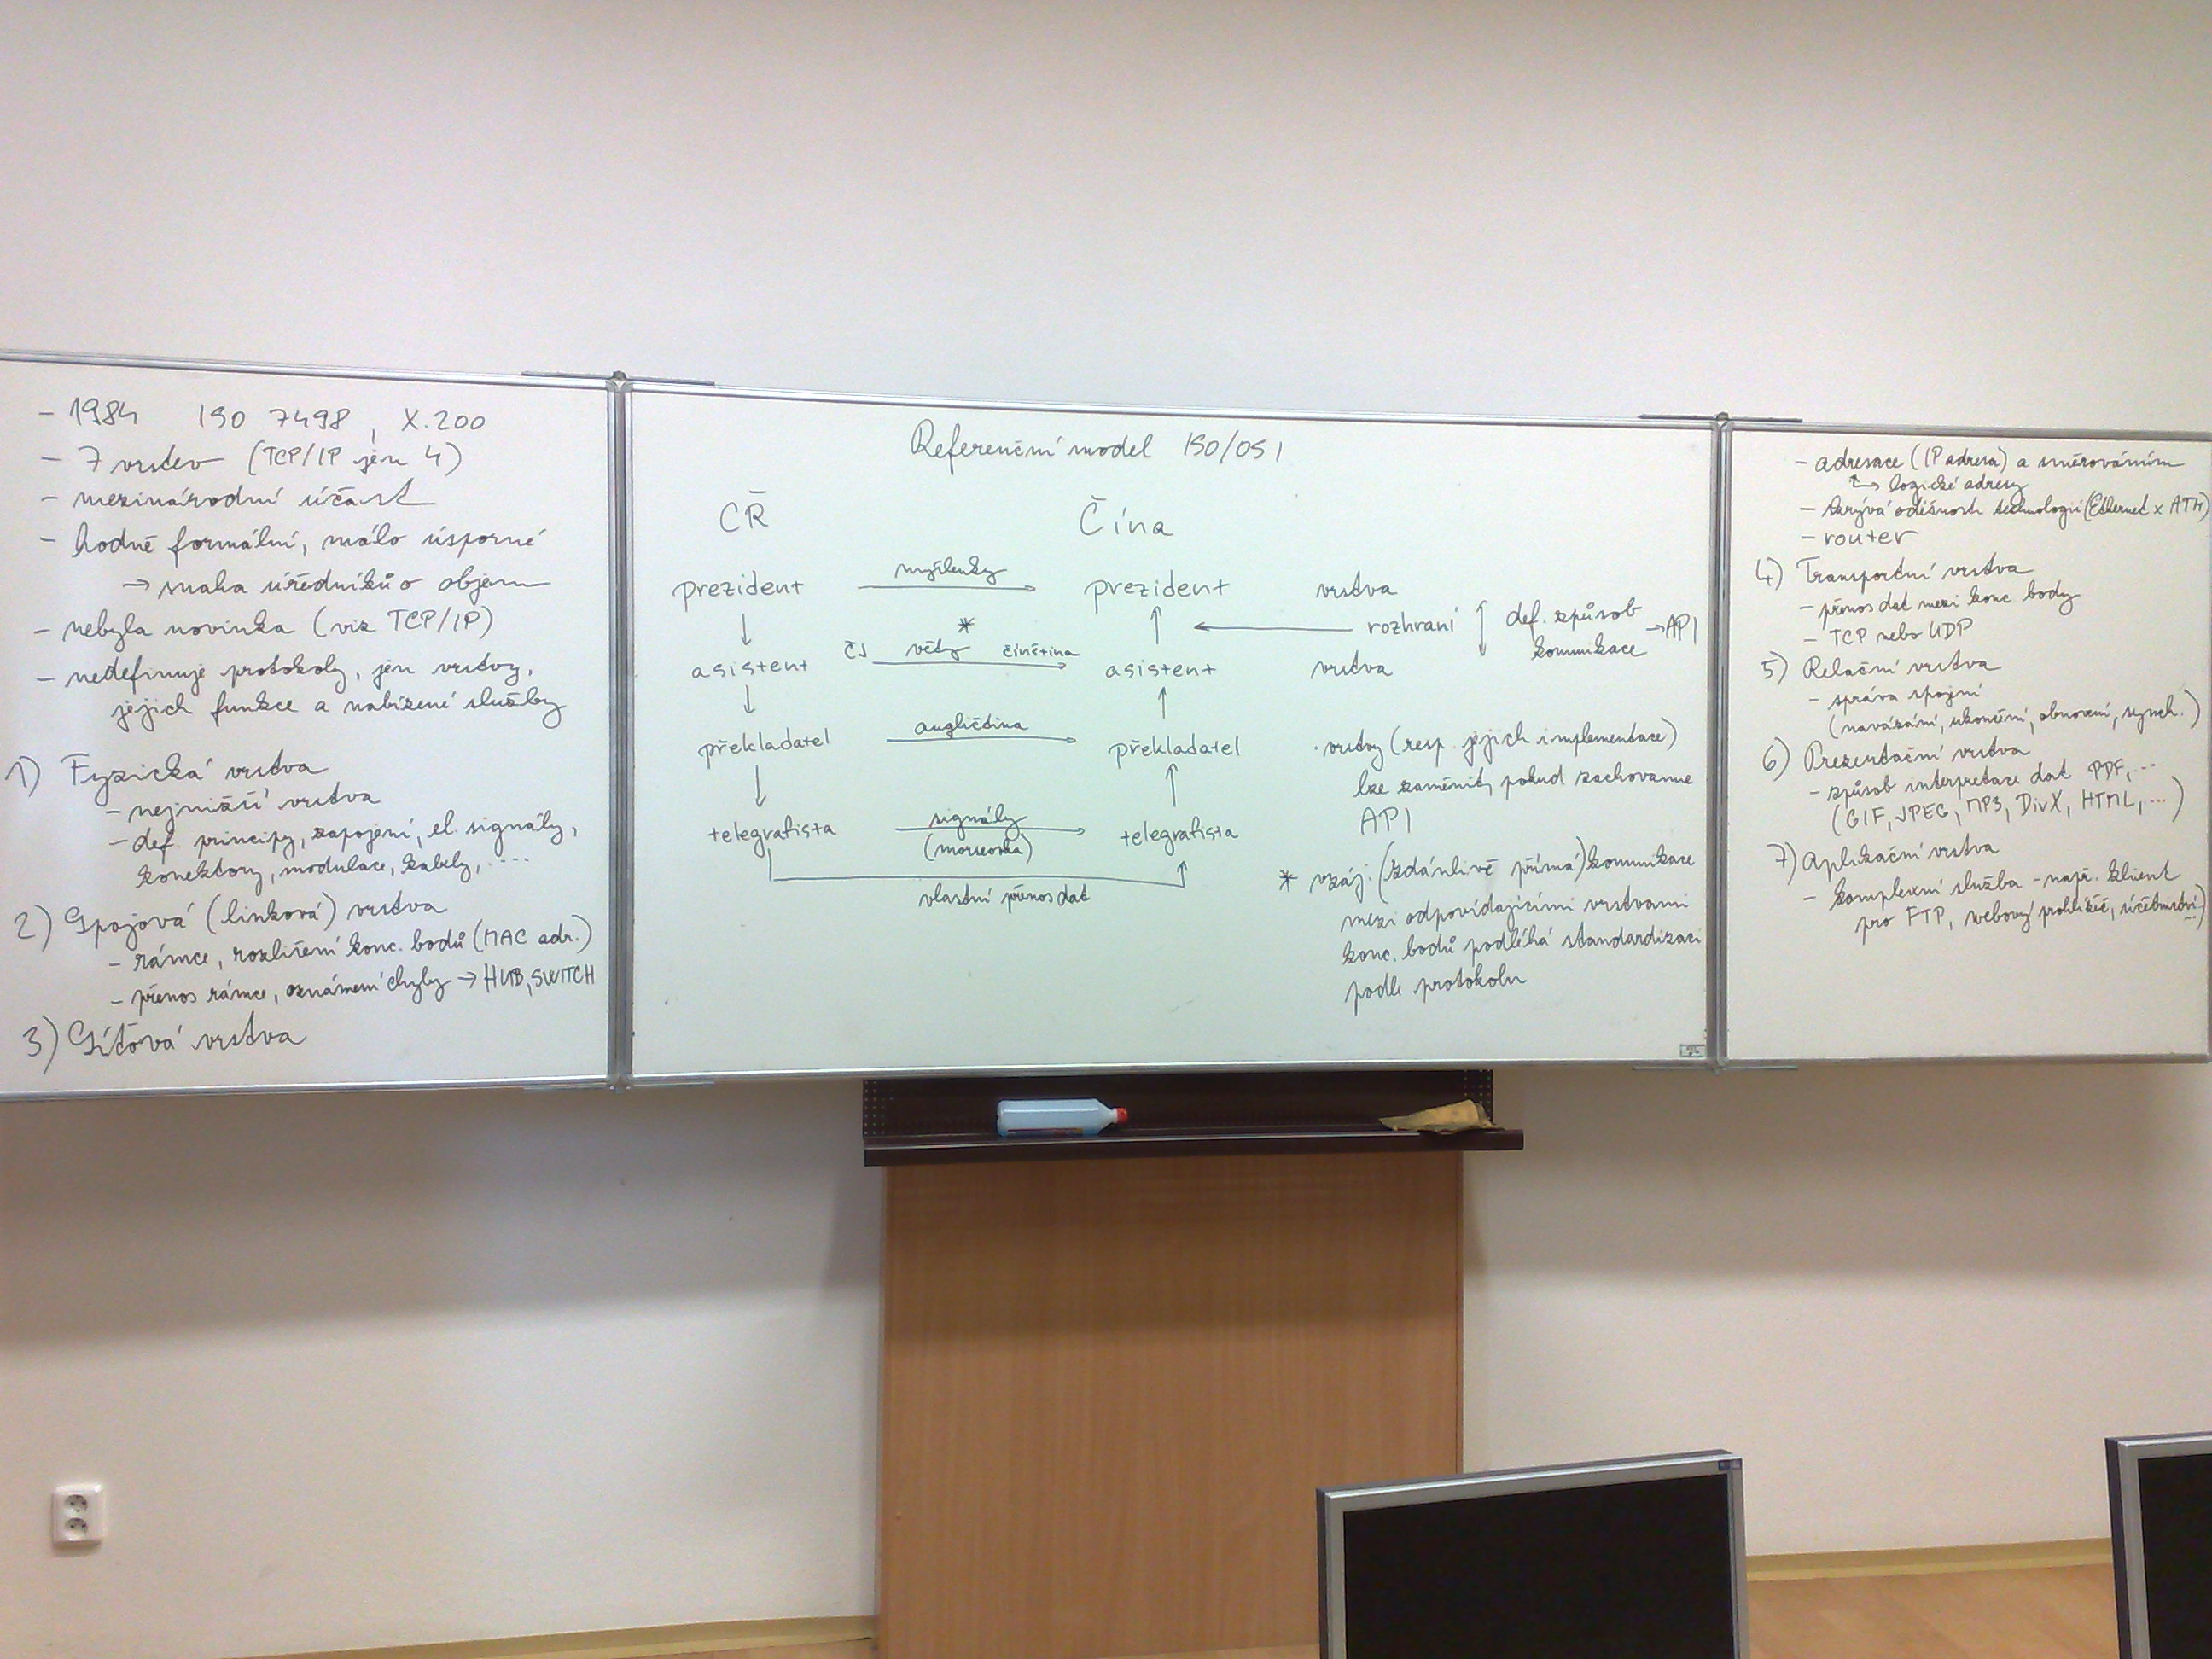 - 1984 ISO 7498, X.200
- 7 vrstev (TCP/IP jen 4)
- mezinárodní účast
- hodně formální, málo úsporné
→ snaha úředníků o objem
- nebyla novinka (viz TCP/IP)
- nedefinuje protokoly, jen vrstvy,
jejich funkce a nabízené služby
1) Fyzická vrstva
- nejnižší vrstva
- def. principy, zapojení, el. signály,
konektory, modulace, kabely, ....
2) Spojová (linková) vrstva
- rámce, rozlišení konc. bodů (MAC adr.)
- přenos rámce, oznámení chyby → HUB, SWITCH
3) Síťová vrstva
Referenční model ISO/OSI
ČR Čína
prezident myšlenky prezident vrstva
rozhraní def. způsob komunikace → API
asistent ČJ věty * čínština asistent vrstva
překladatel angličtina překladatel
telegrafista signály (morseovka) telegrafista
vlastní přenos dat
· vrstvy (resp. jejich implementace)
lze zaměnit, pokud zachováme
API
* vzáj. (zdánlivě přímá) komunikace
mezi odpovídajícími vrstvami
konc. bodů podléhá standardizaci
podle protokolu
- adresace (IP adresa) a směrováním
↳ logické adresy
- skrývá odlišnosti technologií (Ethernet x ATM)
- router
4) Transportní vrstva
- přenos dat mezi konc. body
- TCP nebo UDP
5) Relační vrstva
- správa spojní
(navázání, ukončení, obnovení, synch.)
6) Prezentační vrstva
- způsob interpretace dat PDF, ...
(GIF, JPEG, MP3, DivX, HTML, ...)
7) Aplikační vrstva
- komplexní služba - např. klient
pro FTP, webový prohlížeč, účetnictví...)